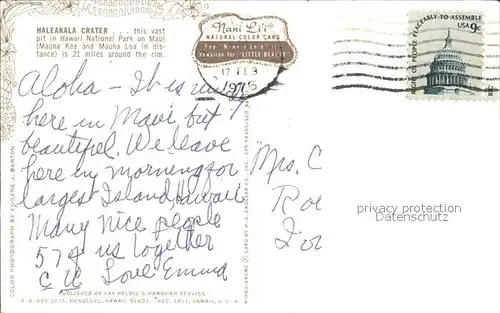 HALEAKALA CRATER . . . this vast
pit in Hawaii National Park on Maui
(Mauna Kea and Mauna Loa in dis-
tance) is 21 miles around the rim.
Nani Li'i
NATURAL COLOR CARD
Say "Nahnee Lee-ee"
Hawaiian for "LITTLE BEAUTY"
1976
RIGHT OF PEOPLE PEACEABLY TO ASSEMBLE
USA 9c
Aloha - It is windy
here in Maui but
beautiful. We leave
here in morning for
largest Island, Hawaii
Many nice people
574 us together
C U Love Emma
Mrs. C
privacy protection
Datenschutz
PUBLISHED BY RAY HELBIG'S HAWAIIAN SERVICE
P. O. BOX 2835, HONOLULU, HAWAII 96803. REG. 1951, HAWAII, U. S. A.
COLOR PHOTOGRAPH BY EUGENE J. BARTON
MIRRO-KROME ® CARD BY H. S. CROCKER CO. INC., SAN FRANCISCO